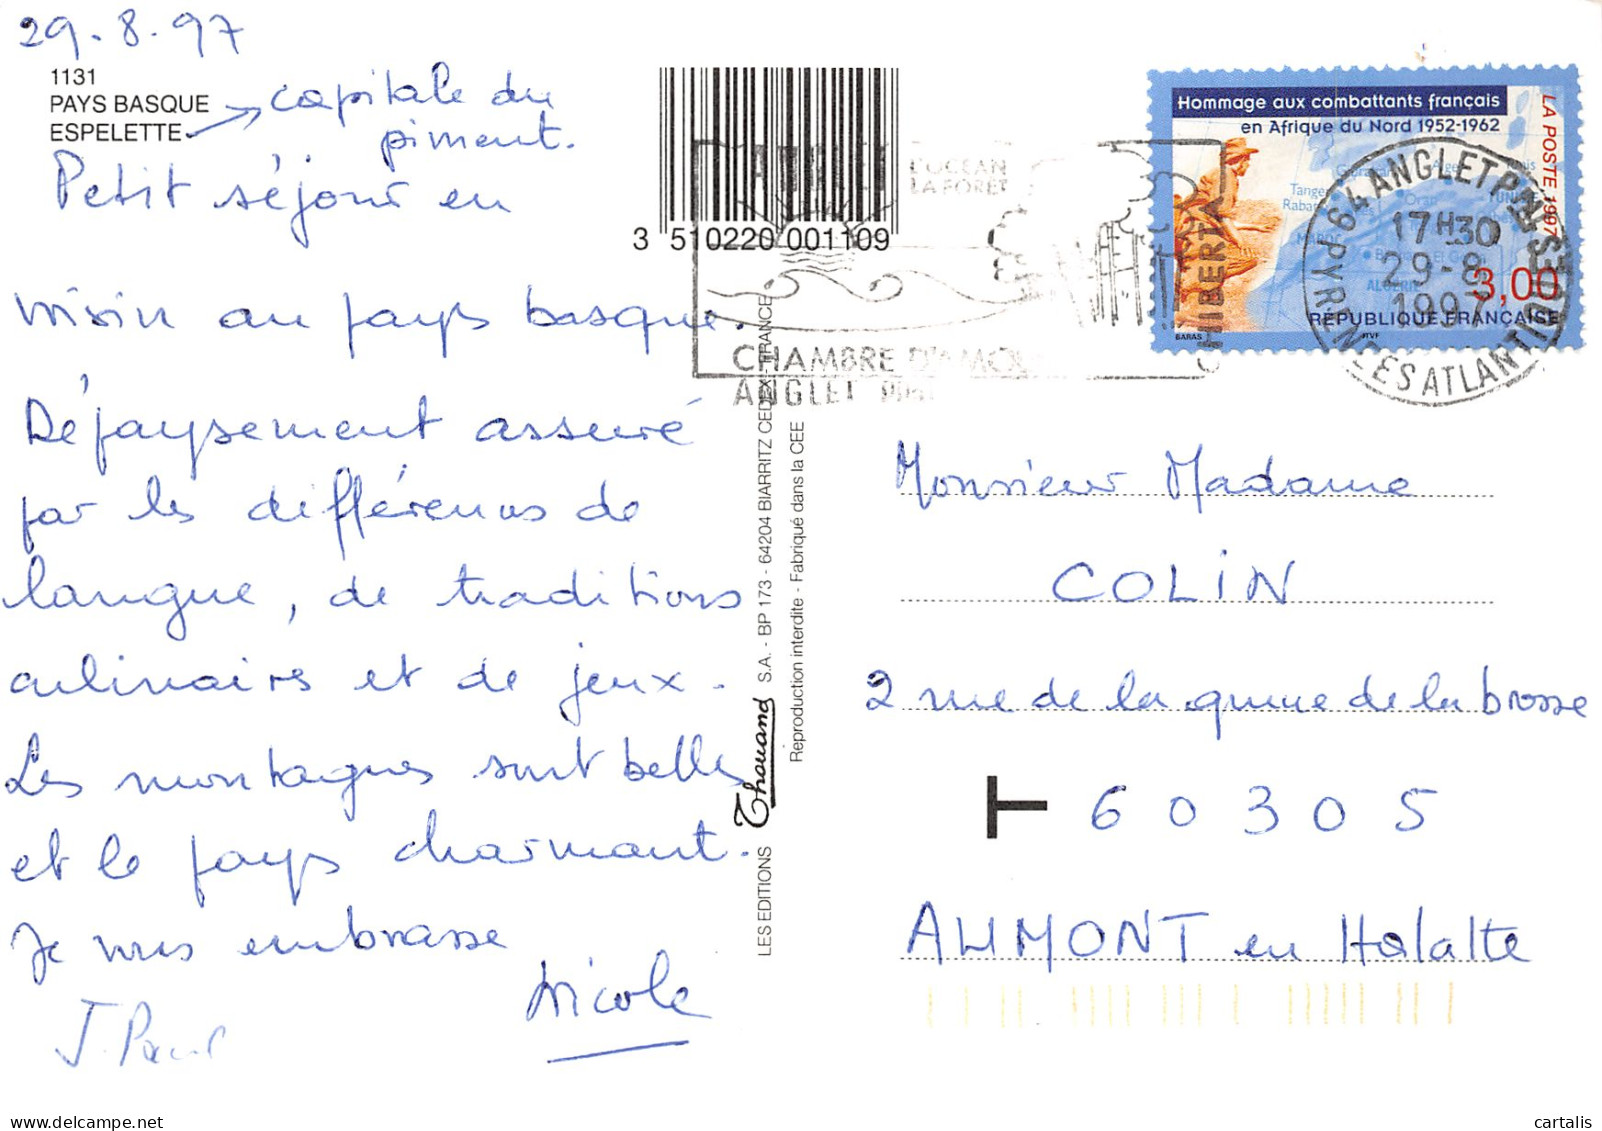 29-8-97
1131
PAYS BASQUE → capitale du
ESPELETTE → piment.
Petit séjour en
voisin au pays basque.
Dépaysement assuré
par les différences de
langue, de traditions
culinaires et de jeux.
Les montagnes sont belles
et le pays charmant.
Je vous embrasse
Nicole
J. Paul
3 510220 001109
L'OCEAN
LA FORET
CHIBERTA
CHAMBRE D'AMOUR
ANGLET
Hommage aux combattants français
en Afrique du Nord 1952-1962
LA POSTE 1997
3,00
RÉPUBLIQUE FRANÇAISE
BARAS
ITVF
64 ANGLET PPAL
17H30
29-8
1997
PYRENEES ATLANTIQUES
LES EDITIONS Thouand S.A. - BP 173 - 64204 BIARRITZ CEDEX - FRANCE
Reproduction interdite - Fabriqué dans la CEE
Monsieur Madame
COLIN
2 rue de la queue de la brosse
T 60305
AUMONT en Halatte
cartalis.com